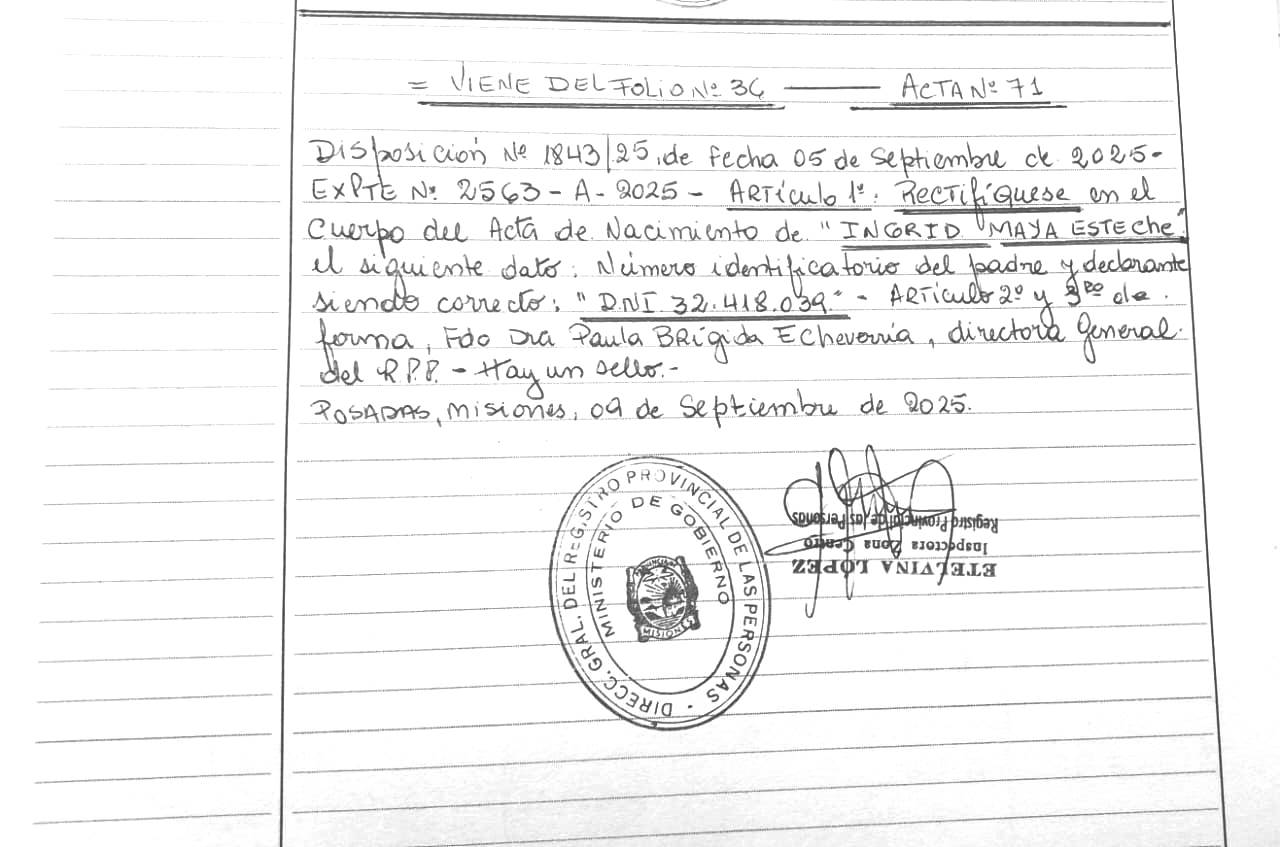 = VIENE DEL FOLIO Nº 36 —— ACTA Nº 71
Disposición Nº 1843/25, de fecha 05 de Septiembre de 2025-
EXPTE Nº 2563-A-2025- ARTÍCULO 1º: RECTIFÍQUESE en el
cuerpo del Acta de Nacimiento de "INGRID MAYA ESTECHE"
el siguiente dato: Número identificatorio del padre y declarante
siendo correcto: "D.N.I. 32.418.039."- ARTÍCULO 2º y 3ro de
forma, Fdo Dra Paula BRígida Echeverría, directora General
del R.P.P. - Hay un sello.-
POSADAS, Misiones, 09 de Septiembre de 2025.
DIRECC. GRAL. DEL REGISTRO PROVINCIAL DE LAS PERSONAS -
MINISTERIO DE GOBIERNO
MISIONES
ETELVINA LÓPEZ
Inspectora Zona Centro
Registro Provincial de las Personas